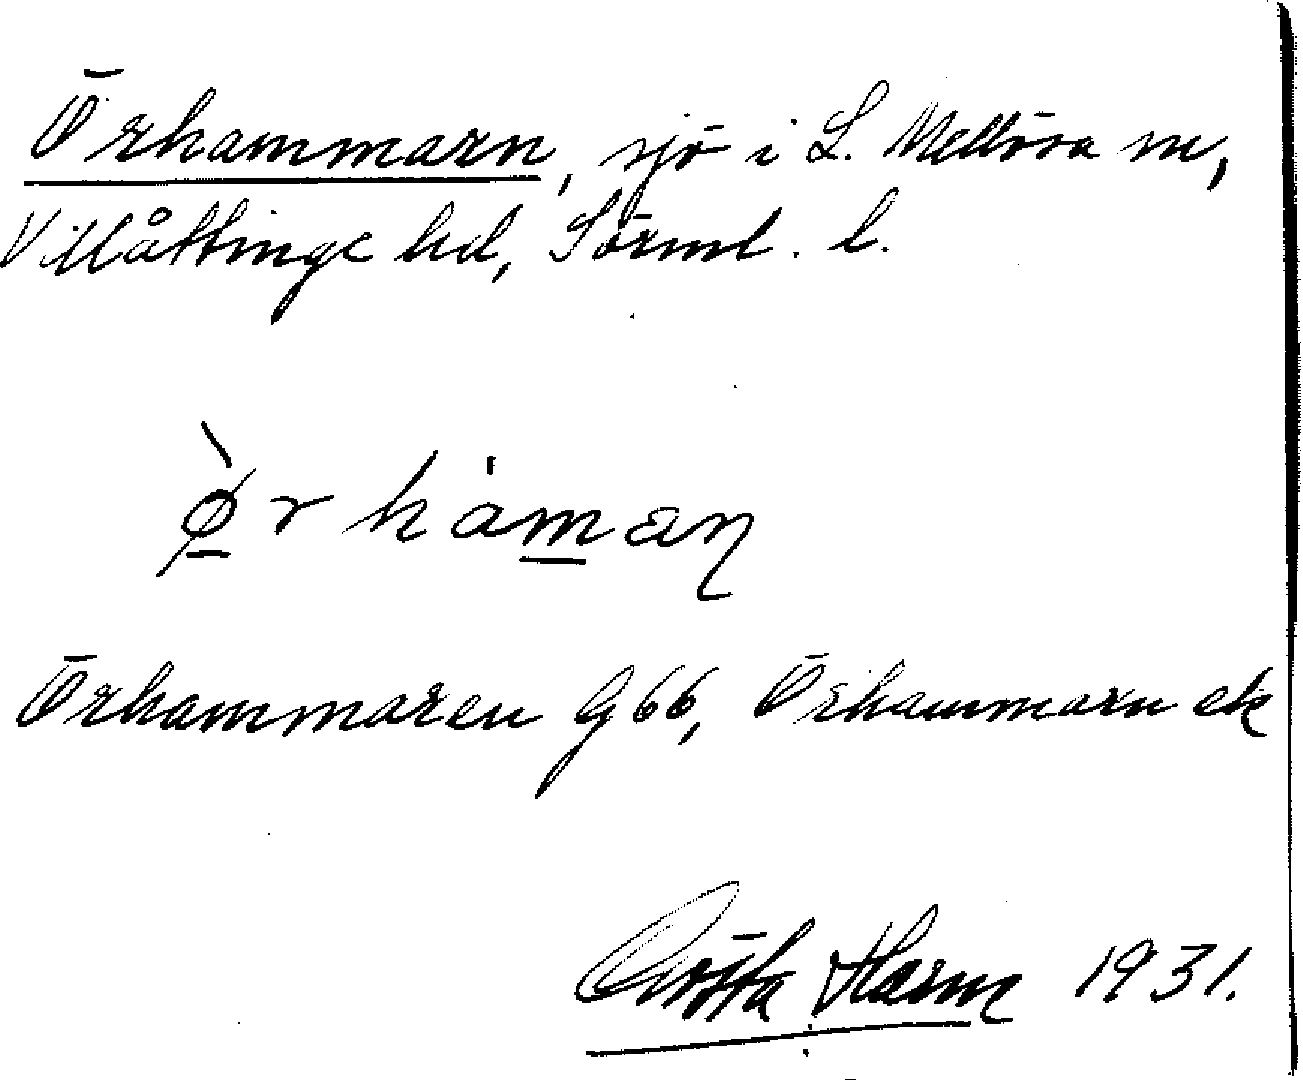 Örhammarn, sjö i L. Mellösa sn,
Villåttinge hd, Sörml. l.
ø̀rhàmaꞃ
Örhammaren G66, Örhammarn ek
Gösta Harm 1931.